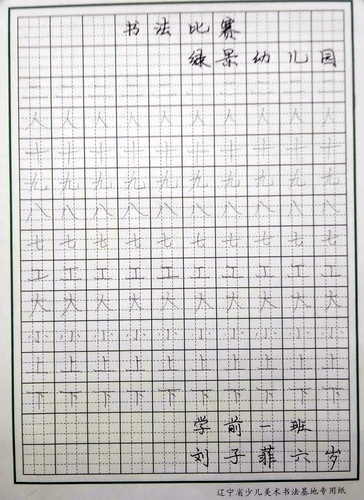 书法比赛
绿景幼儿园
二二二二二二二二二二
人人人人人人人人人人
九九九九九九九九九九
八八八八八八八八八八
七七七七七七七七七七
工工工工工工工工工工
大大大大大大大大大大
小小小小小小小小小小
上上上上上上上上上上
下下下下下下下下下下
学前一班
刘子菲六岁
辽宁省少儿美术书法基地专用纸